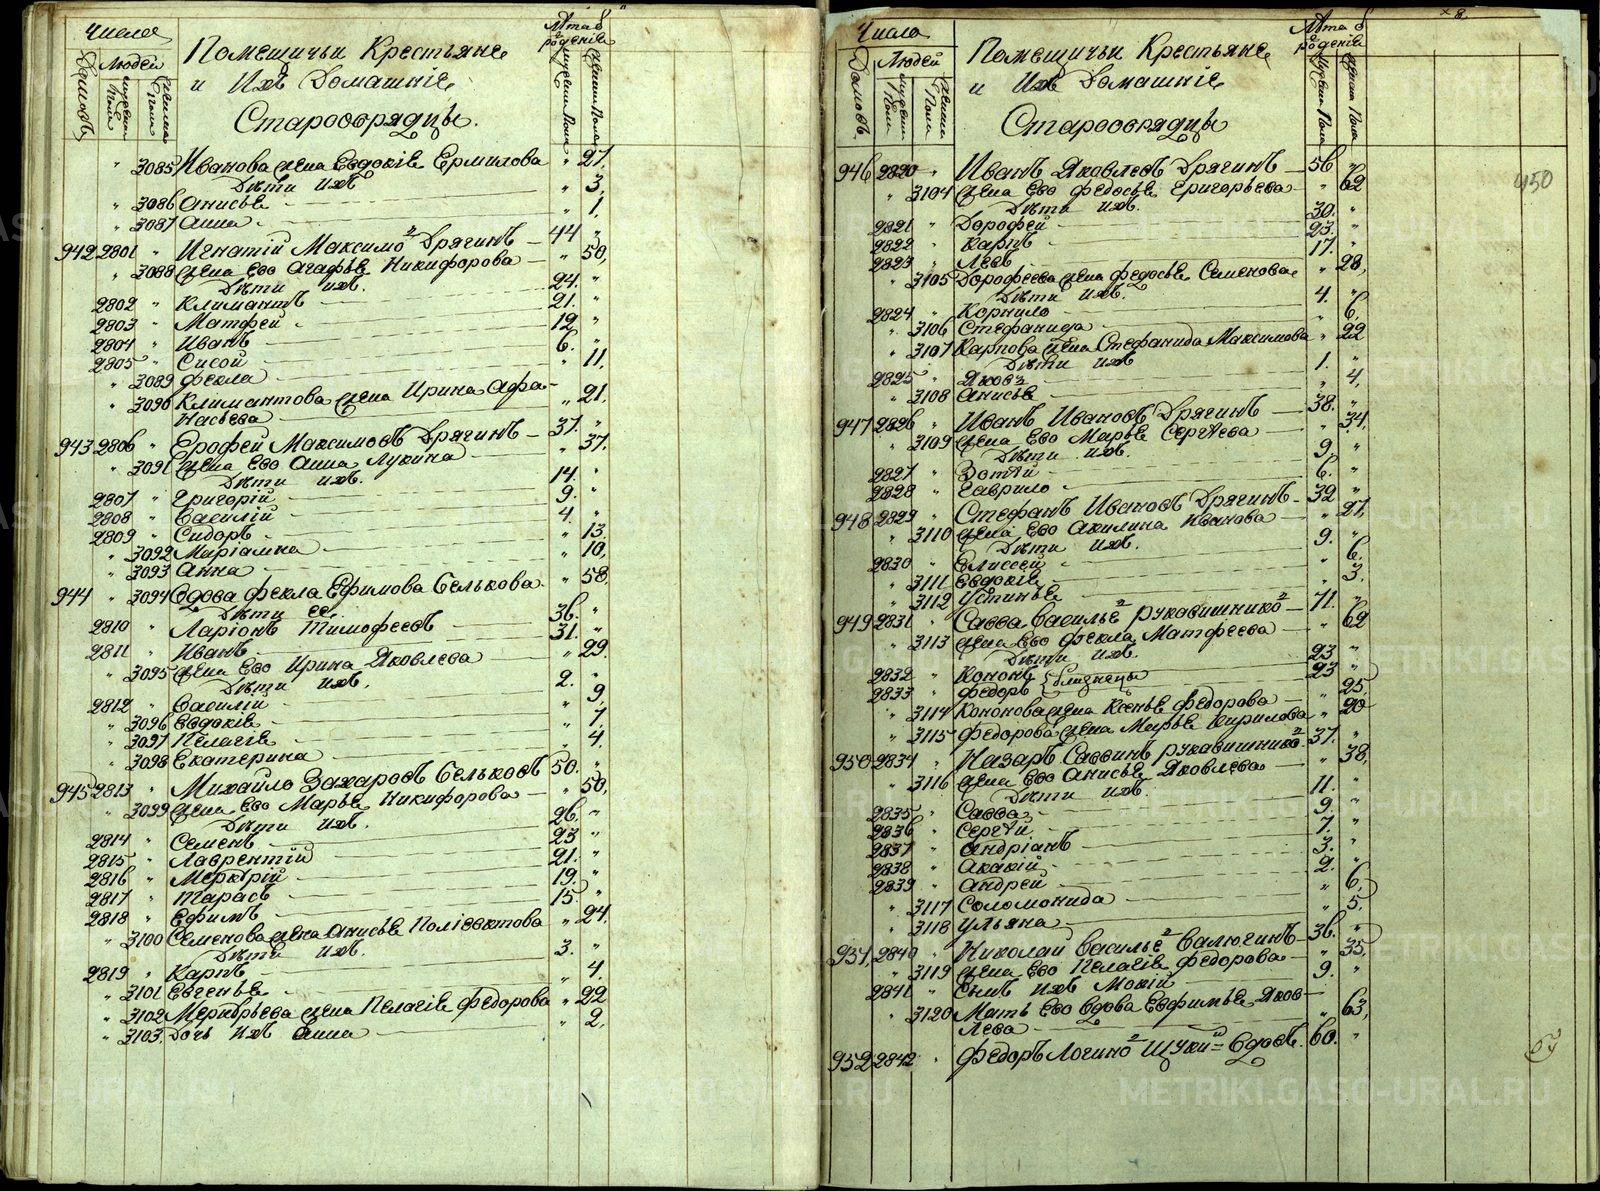 Число
Домовъ
Людей
Мужеска Пола
Женска Пола
Помещичьи Крестьяне
и Ихъ Домашніе
Старообрядцы.
Лѣта
Мужеска Пола
Женска Пола
" 3085 Иванова жена Евдокіе Ермилова " 27.
Дѣти ихъ
" 3086 Анисье " 3,
" 3087 Анна " 1,
942 2801 " Игнатій Максимо Дрягинъ 44 "
" 3088 жена Его Агафье Никифорова " 50,
Дѣти ихъ.
2802 " Климантъ 24. "
2803 " Матфей 21. "
2804 " Иванъ 12 "
2805 " Сисой 6. "
" 3089 Фекла " 11,
" 3090 Климантова жена Ирина Афа-
насьева " 21,
943 2806 " Ерофей Максимовъ Дрягинъ 37. "
" 3091 жена Его Анна Лукина " 37.
Дѣти ихъ.
2807 " Григорій 14. "
2808 " Василій 9. "
2809 " Сидоръ 4. "
" 3092 Маріамна " 13,
" 3093 Анна " 10,
944 " 3094 Вдова Фекла Ефимова Селькова " 58.
Дѣти ее
2810 " Ларіонъ Тимофеевъ 36. "
2811 " Иванъ 31. "
" 3095 жена Его Ирина Яковлева " 29.
Дѣти ихъ.
2812 " Василій 2. "
" 3096 Евдокіе " 9,
" 3097 Пелагіе " 7,
" 3098 Екатерина " 4.
945 2813 " Михайло Захаровъ Сельковъ 50. "
" 3099 жена Его Марье Никифорова " 50,
Дѣти ихъ.
2814 " Семенъ 26. "
2815 " Лаврентій 23 "
2816 " Меркурій 21. "
2817 " Тарасъ 19. "
2818 " Ефимъ 15. "
" 3100 Семенова жена Анисье Поліевктова " 24,
Дѣти ихъ.
2819 " Карпъ 3. "
" 3101 Евгенье " 4.
" 3102 Меркурьева жена Пелагіе Федорова " 22
" 3103. Дочь ихъ Анна " 2,
Число
Домовъ
Людей
Мужеска Пола
Женска Пола
Помещичьи Крестьяне
и Ихъ Домашніе
Старообрядцы
Лѣта
Мужеска Пола
Женска Пола
450
946 2820 " Иванъ Яковлевъ Дрягинъ 56 "
" 3104 жена Его Федосье Григорьева " 62
Дѣти ихъ.
2821 " Дорофей 30. "
2822 " Карпъ 23. "
2823 " Левъ 17. "
" 3105 Дорофеева жена Федосье Семенова " 28,
Дѣти ихъ.
2824 " Корнило 4. "
" 3106 Стефанида " 6.
" 3107 Карпова жена Стефанида Максимова " 22
Дѣти ихъ
2825 " Яковъ 1. "
" 3108 Анисье " 4,
947 2826 " Иванъ Ивановъ Дрягинъ 38. "
" 3109 жена Его Марье Сергѣева " 34.
Дѣти ихъ.
2827 " Зотѣй 9. "
2828 " Гаврило 6. "
948 2829 " Стефанъ Ивановъ Дрягинъ 32 "
" 3110 жена Его Акилина Иванова " 27,
Дѣти ихъ.
2830 " Елисей 9. "
" 3111 Евдокіе " 6.
" 3112 Устинье " 3.
949 2831 " Савва Василье Рукавишнико 71. "
" 3113 жена Его Фекла Матфеева " 62
Дѣти ихъ.
2832 " Кононъ 23 "
близнецы
2833 " Федоръ 23 "
" 3114 Кононова жена Ксенье Федорова " 25,
" 3115 Федорова жена Марье Кирилова " 20
950 2834 " Назаръ Саввинъ Рукавишнико 37. "
" 3116 жена Его Анисье Яковлева " 38,
Дѣти ихъ.
2835 " Савва 11. "
2836 " Сергѣй 9. "
2837 " Андріанъ 7. "
2838 " Акакій 3. "
2839 " Андрей 2. "
" 3117 Соломонида " 6,
" 3118 Ульяна " 5,
951, 2840 " Николай Василье Валюгинъ 36. "
" 3119 жена Его Пелагіе Федорова " 35,
2841 " Сынъ ихъ Мокій 9. "
" 3120 Мать Его вдова Евфимье Яков-
лева " 63,
952 2842 " Федоръ Логино Щуки вдовъ. 60. "
METRIKI.GASO-URAL.RU